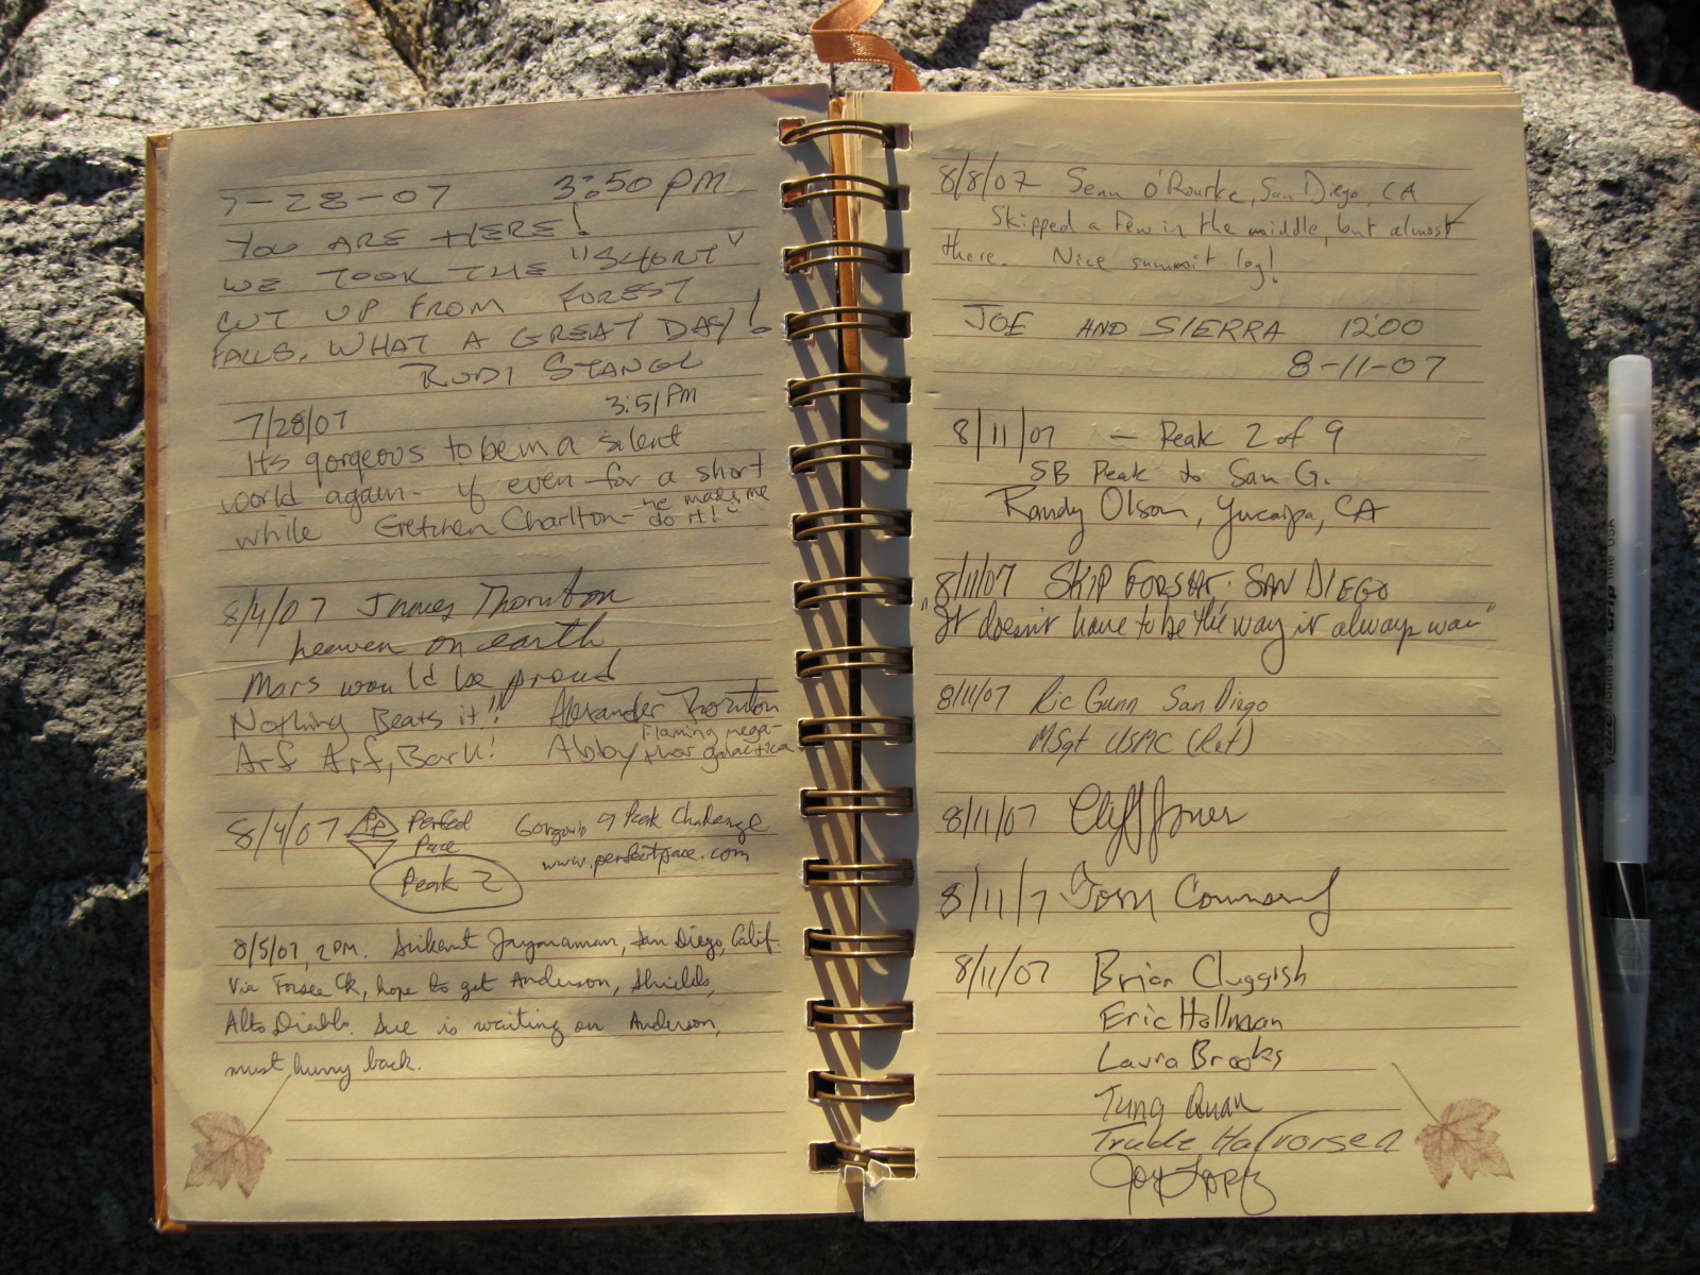 7-28-07 3:50 PM
YOU ARE HERE!
WE TOOK THE "SHORT"
CUT UP FROM FOREST
FALLS. WHAT A GREAT DAY!
RUDI STANGL
7/28/07 3:51 PM
Its gorgeous to be in a silent
world again - if even for a short
while Gretchen Charlton - he made me
do it!
8/4/07 James Thornton
heaven on earth
Mars would be proud
Nothing Beats it!! Alexander Thornton
Arf Arf, Bark! Abby Flaming mega-
thor galactica
8/4/07 PP Perfect
Pace
Gorgonio 9 Peak Challenge
www.perfectpace.com
Peak 2
8/5/07, 2 PM. Srikant Jayaraman, San Diego, Calif.
Via Forsee Ck, hope to get Anderson, Shields,
Alto Diablo. Sue is waiting on Anderson,
must hurry back.
8/8/07 Sean O'Rourke, San Diego, CA
Skipped a few in the middle, but almost
there. Nice summit log!
JOE AND SIERRA 12:00
8-11-07
8/11/07 - Peak 2 of 9
SB Peak to San G.
Randy Olson, Yucaipa, CA
8/11/07 SKIP FORSHT. SAN DIEGO
"It doesn't have to be the way it always was"
8/11/07 Ric Gunn San Diego
MSgt USMC (Ret)
8/11/07 Cliff Jones
8/11/7 Tom
8/11/07 Brian Cluggish
Eric Hallman
Laura Brooks
Tung Quan
Trude Halvorsen
Joy Lopez